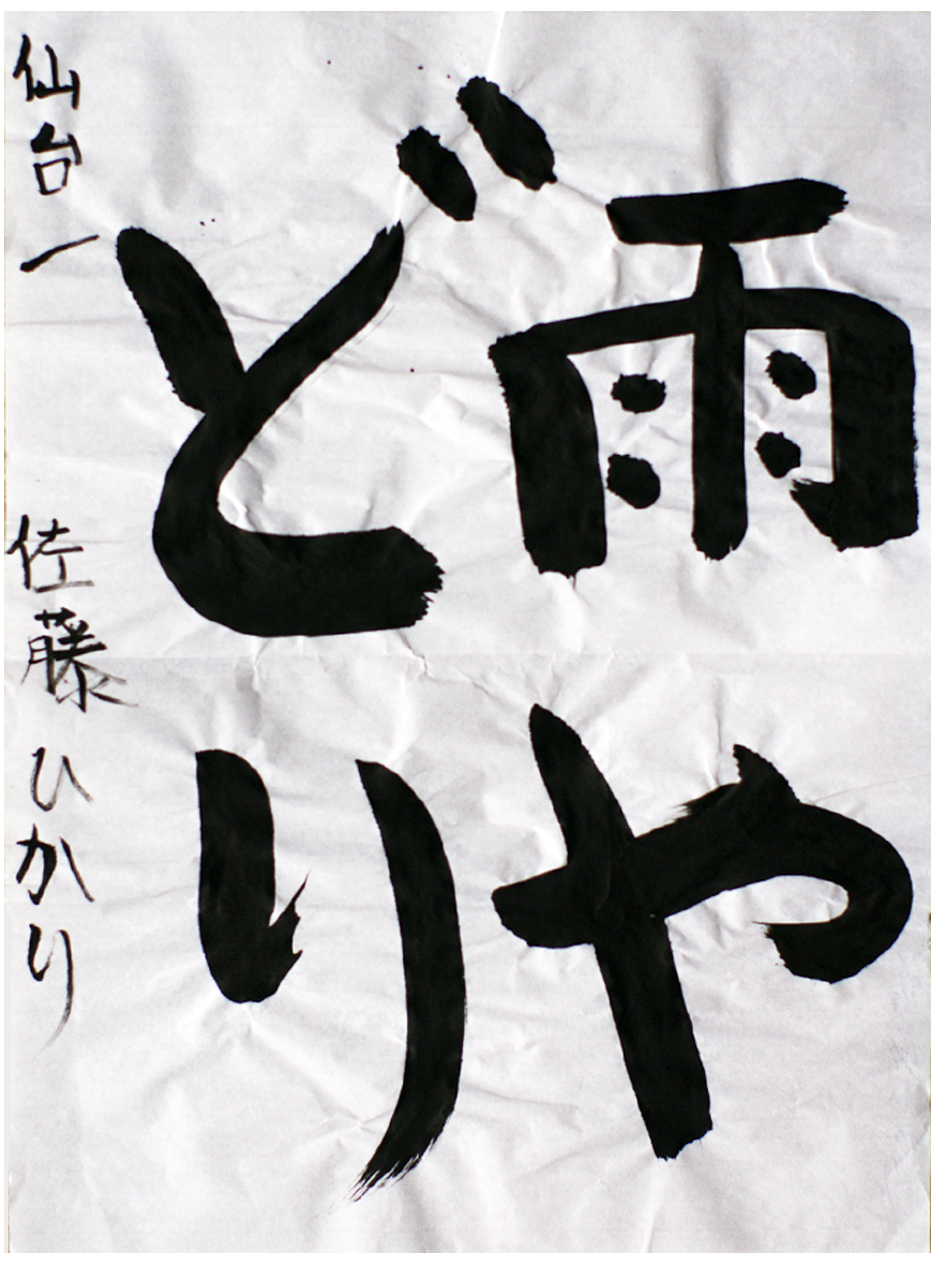 雨や
どり
仙台一 佐藤ひかり